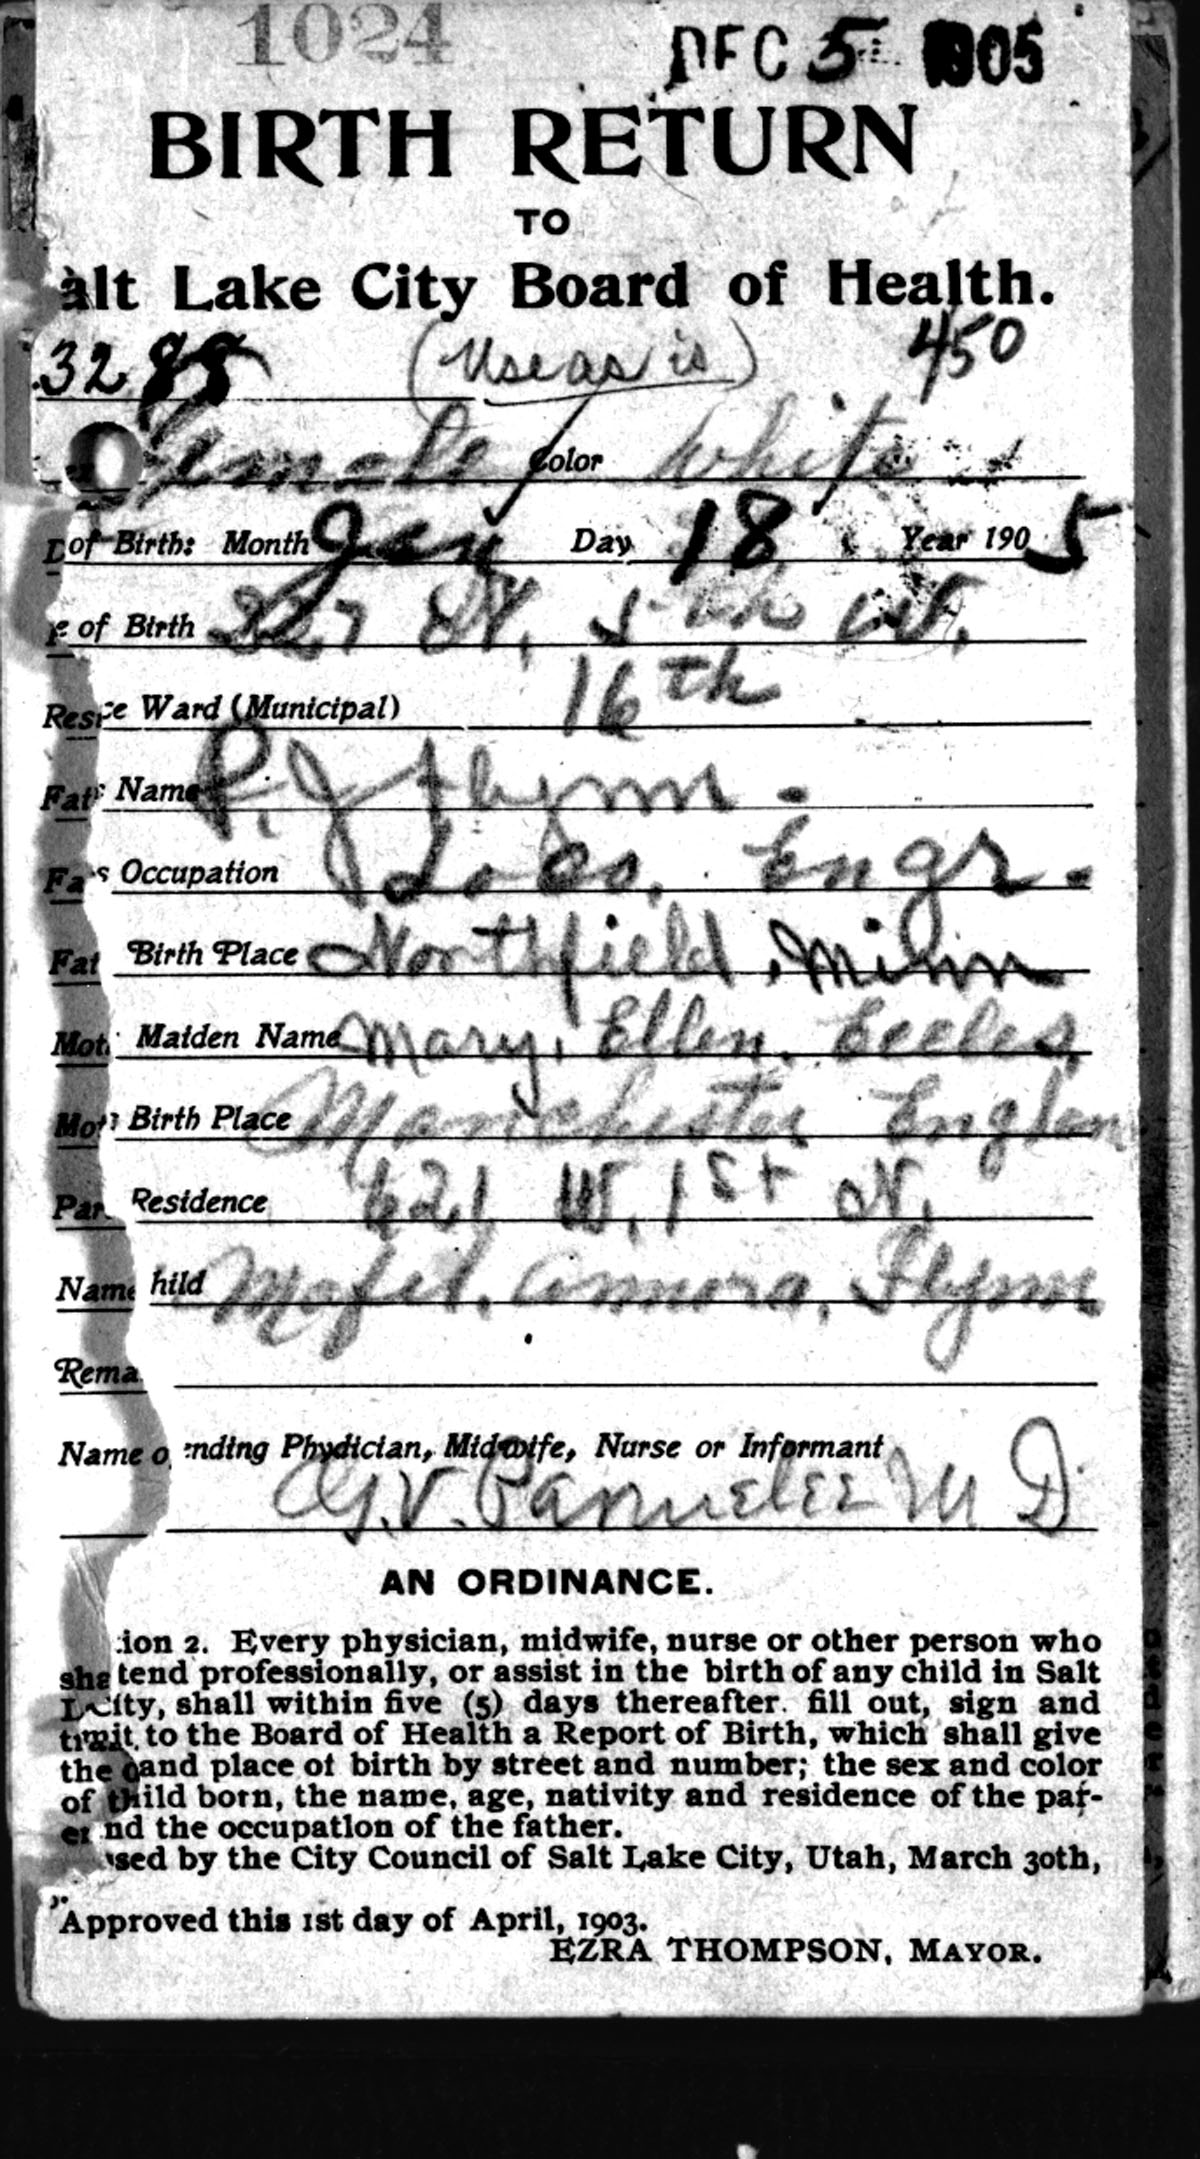 1024
DEC 5 1905
BIRTH RETURN
TO
alt Lake City Board of Health.
3288 (Use as is) 450
Female Color White
D of Birth: Month Jan Day 18 Year 1905
e of Birth 327 N. 5th W.
Resi ce Ward (Municipal) 16th
Fat Name P. J. Flynn.
Fa s Occupation Loco. Engr.
Fat Birth Place Northfield, Minn
Mot Maiden Name Mary, Ellen. Eccles
Mot Birth Place Manchester Englan
Par Residence 621 W. 1st N.
Name hild Flynn
Rema
Name o nding Phydician, Midwife, Nurse or Informant
G.V. Parmelee M D
AN ORDINANCE.
ion 2. Every physician, midwife, nurse or other person who
sha tend professionally, or assist in the birth of any child in Salt
L City, shall within five (5) days thereafter. fill out, sign and
mit to the Board of Health a Report of Birth, which shall give
the and place of birth by street and number; the sex and color
of hild born, the name, age, nativity and residence of the par-
er nd the occupation of the father.
sed by the City Council of Salt Lake City, Utah, March 30th,
Approved this 1st day of April, 1903.
EZRA THOMPSON, MAYOR.